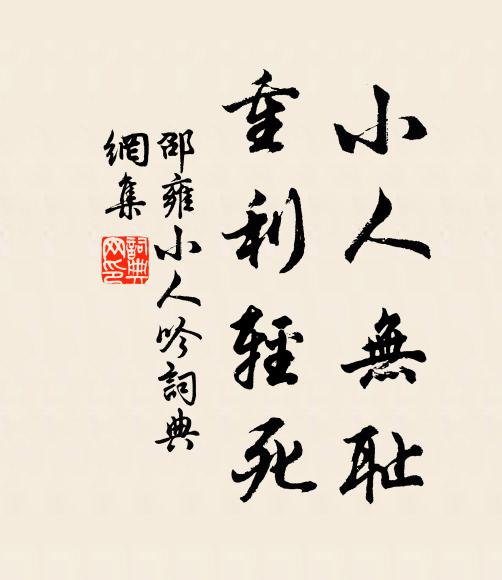 小人無耻
重利輕死
邵雍小人吟詞典
網集
詞典網印